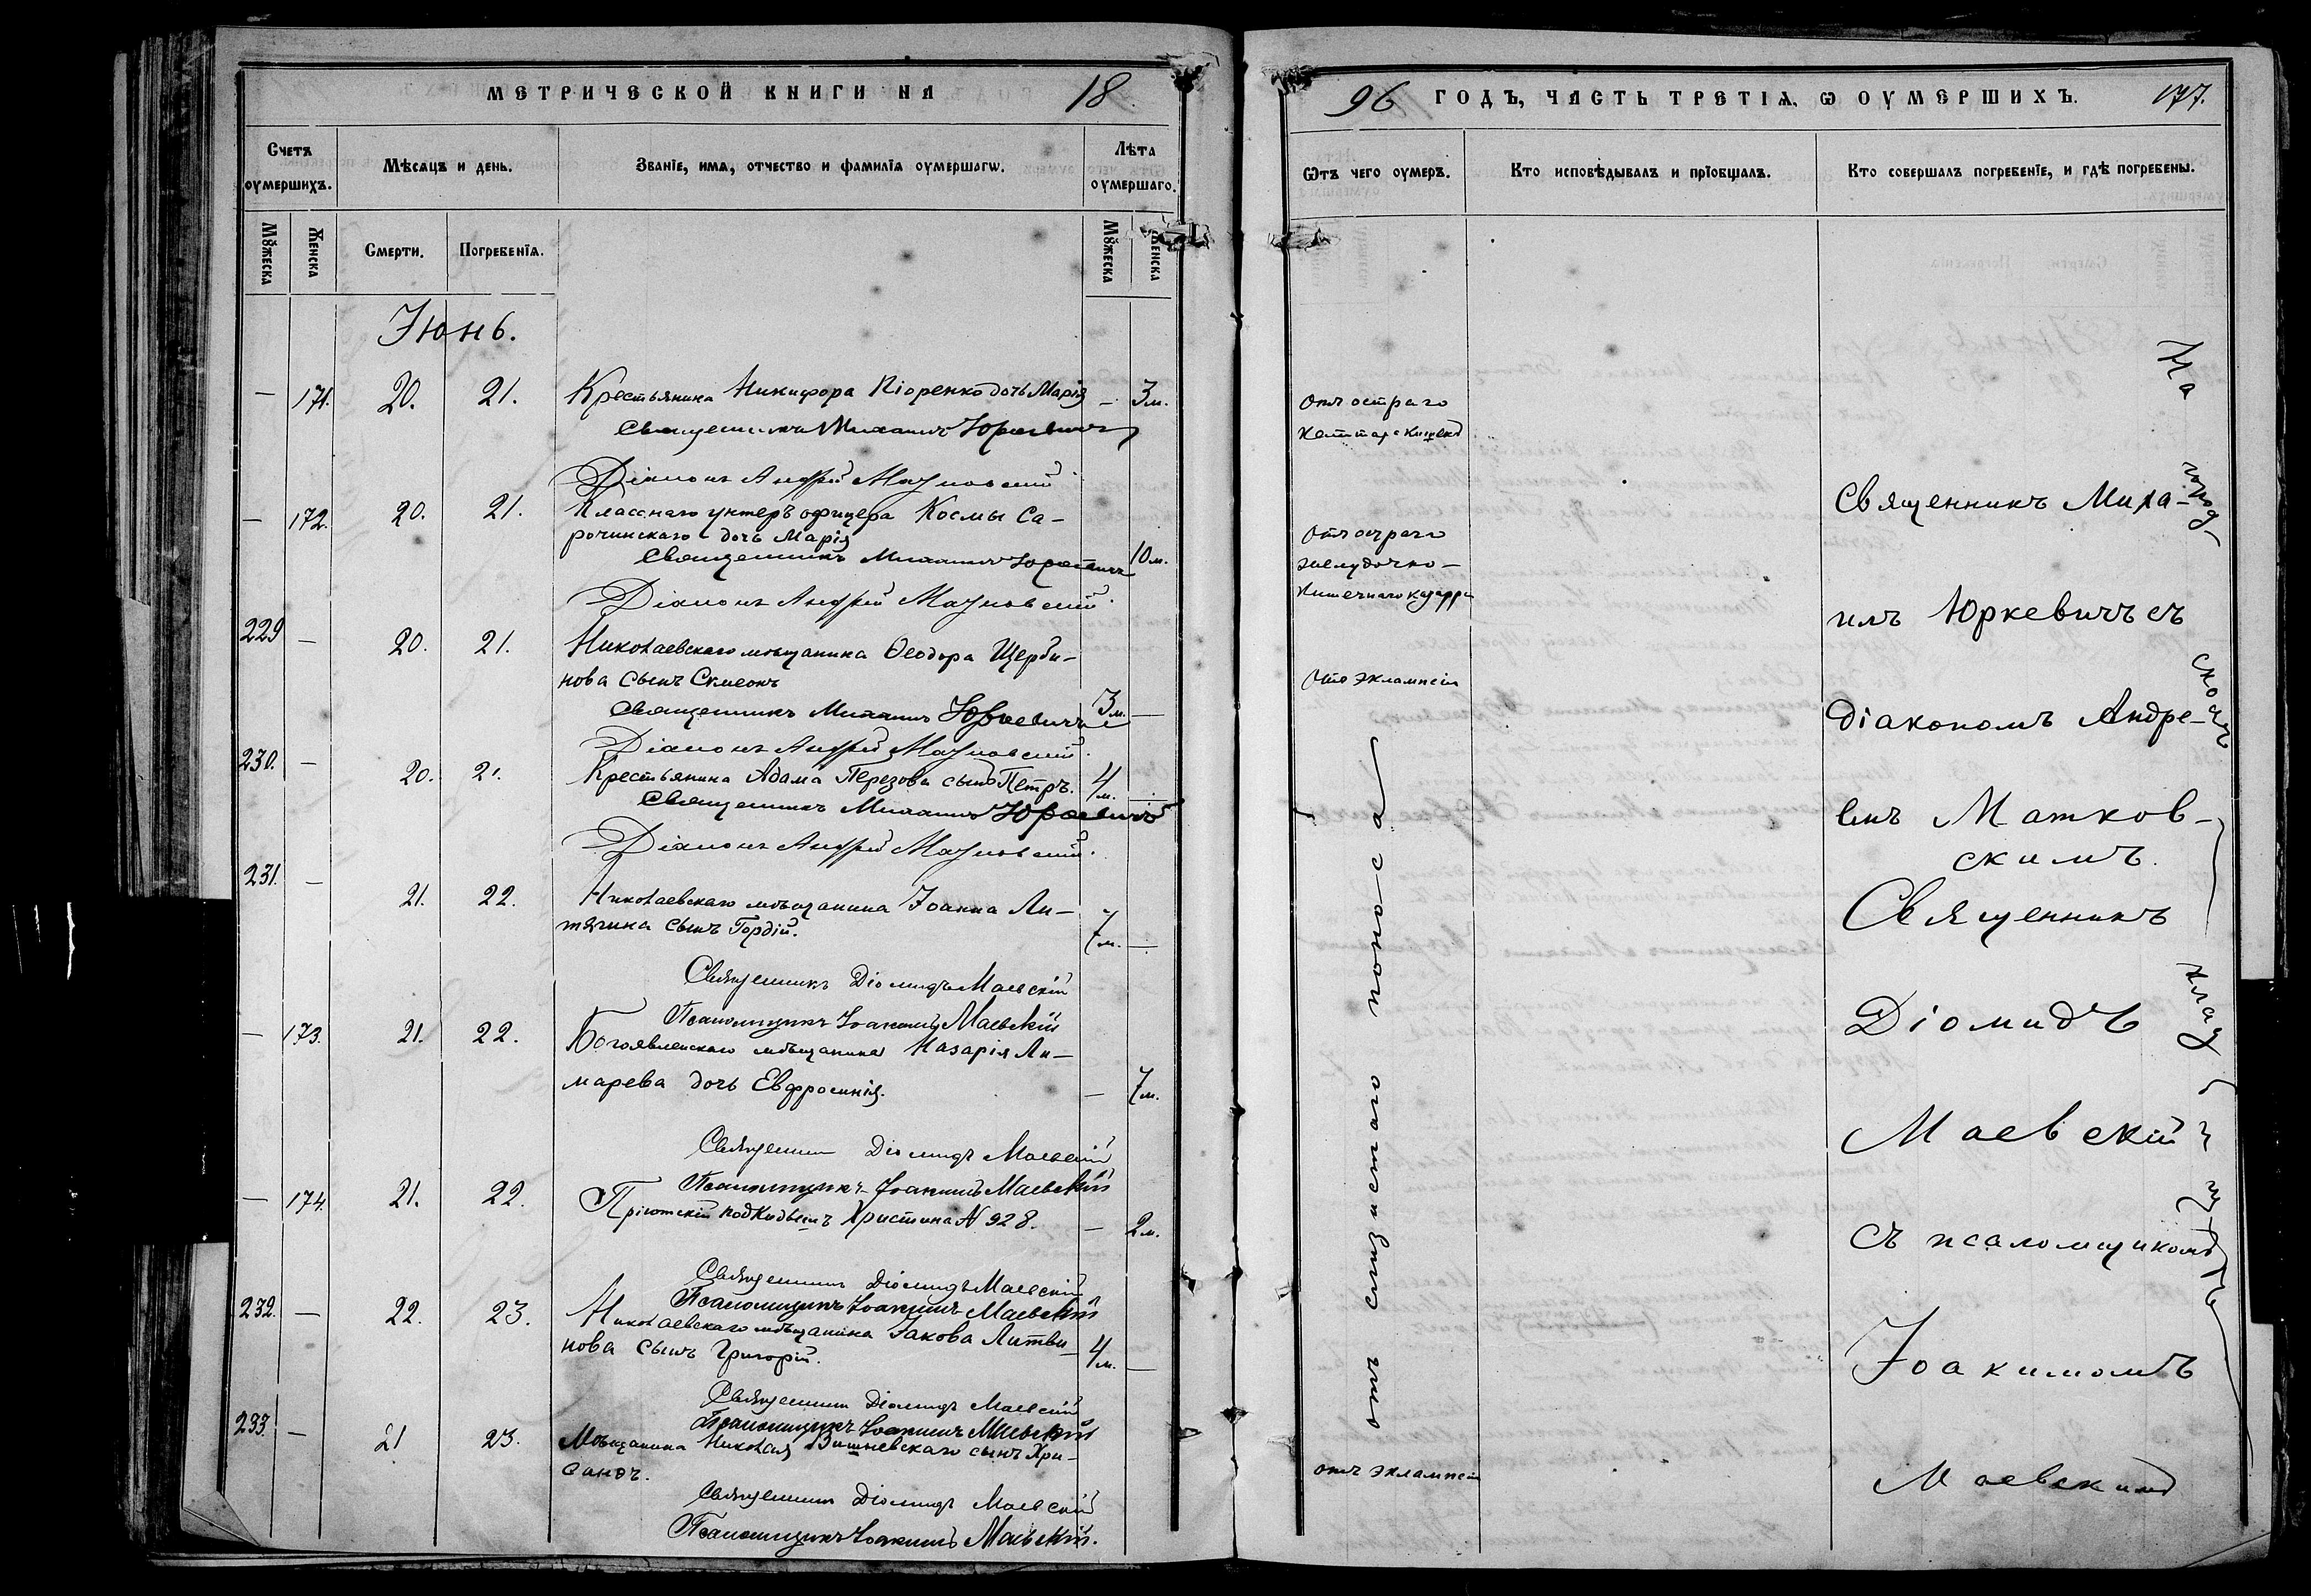 МЕТРИЧЕСКОЙ КНИГИ НА 18
Счетъ оумершихъ.
Мѣсяцъ и день.
Званіе, имя, отчество и фамилія оумершагѡ.
Лѣта оумершаго.
Мꙋжеска
Женска
Смерти.
Погребенія.
Мꙋжеска
Женска
Іюнь.
— 171. 20. 21. Крестьянина Никифора дочь Марія — 3 м.
Священникъ Михаилъ Юркевичъ
Діаконъ Андрей Матковскій
— 172. 20. 21. Класснаго унтеръ офицера Космы Са-
рочинскаго дочь Марія
Священникъ Михаилъ Юркевичъ 10 м.
Діаконъ Андрей Матковскій.
229 — 20. 21. Николаевскаго мѣщанина Ѳеодора Щерби-
нова сынъ Симеонъ
Священникъ Михаилъ Юркевичъ 3 м. —
Діаконъ Андрей Матковскій.
230. — 20. 21. Крестьянина Адама сынъ Петръ. 4 м. —
Священникъ Михаилъ Юркевичъ
Діаконъ Андрей Матковскій.
231. — 21. 22. Николаевскаго мѣщанина Іоанна Ли-
тягина сынъ Гордій. 7 м. —
Священникъ Діомидъ Маевскій
Псаломщикъ Іоакимъ Маевскій
— 173. 21. 22. Богоявленскаго мѣщанина Назарія Ли-
марева дочь Евфросинія. — 7 м.
Священникъ Діомидъ Маевскій
Псаломщикъ Іоакимъ Маевскій
— 174. 21. 22. Пріютскій подкидышъ Христина N 928. — 2 м.
Священникъ Діомидъ Маевскій
Псаломщикъ Іоакимъ Маевскій
232. — 22. 23. Николаевскаго мѣщанина Іакова Литви-
нова сынъ Григорій. 4 м. —
Священникъ Діомидъ Маевскій
Псаломщикъ Іоакимъ Маевскій
233. — 21 23. Мѣщанина Николая Вишневскаго сынъ Хри-
санѳъ.
Священникъ Діомидъ Маевскій
Псаломщикъ Іоакимъ Маевскій.
96 ГОДЪ, ЧАСТЬ ТРЕТІЯ, Ѡ ОУМЕРШИХЪ. 177.
Ѿтъ чего оумеръ.
Кто исповѣдывалъ и пріобщалъ.
Кто совершалъ погребеніе, и гдѣ погребены.
Отъ остраго
Отъ остраго
желудочно-
кишечнаго катарра
Отъ эклампсіи
отъ слизистаго поноса
отъ эклампсіи
Священникъ Миха-
илъ Юркевичъ съ
діакономъ Андре-
емъ Матков-
скимъ.
Священникъ
Діомидъ
Маевскій
съ псаломщикомъ
Іоакимомъ
Маевскимъ
На
город-
скомъ
клад-